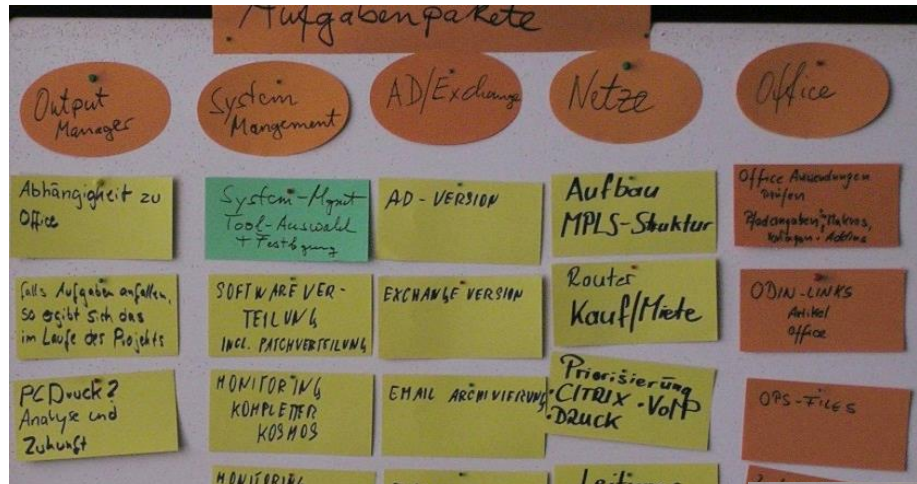 Aufgabenpakete
Output
Manager
System
Mangement
AD/Exchange
Netze
Office
Abhängigkeit zu
Office
falls Aufgaben anfallen,
so ergibt sich das
im Laufe des Projekts
PC Druck?
Analyse und
Zukunft
System-Mgmt
Tool-Auswahl
+ Festlegung
SOFTWAREVER-
TEILUNG
INCL. PATCHVERTEILUNG
MONITORING
KOMPLETTER
KOSMOS
MONITORING
AD-VERSION
EXCHANGE VERSION
EMAIL ARCHIVIERUNG
Aufbau
MPLS-Struktur
Router
Kauf/Miete
Priorisierung
·CITRIX ·VoIP
·DRUCK
Office Anwendungen
prüfen
Pfadangaben, Makros,
Vorlagen - Addins
ODIN-LINKS
Artikel
Office
OPS-FILES